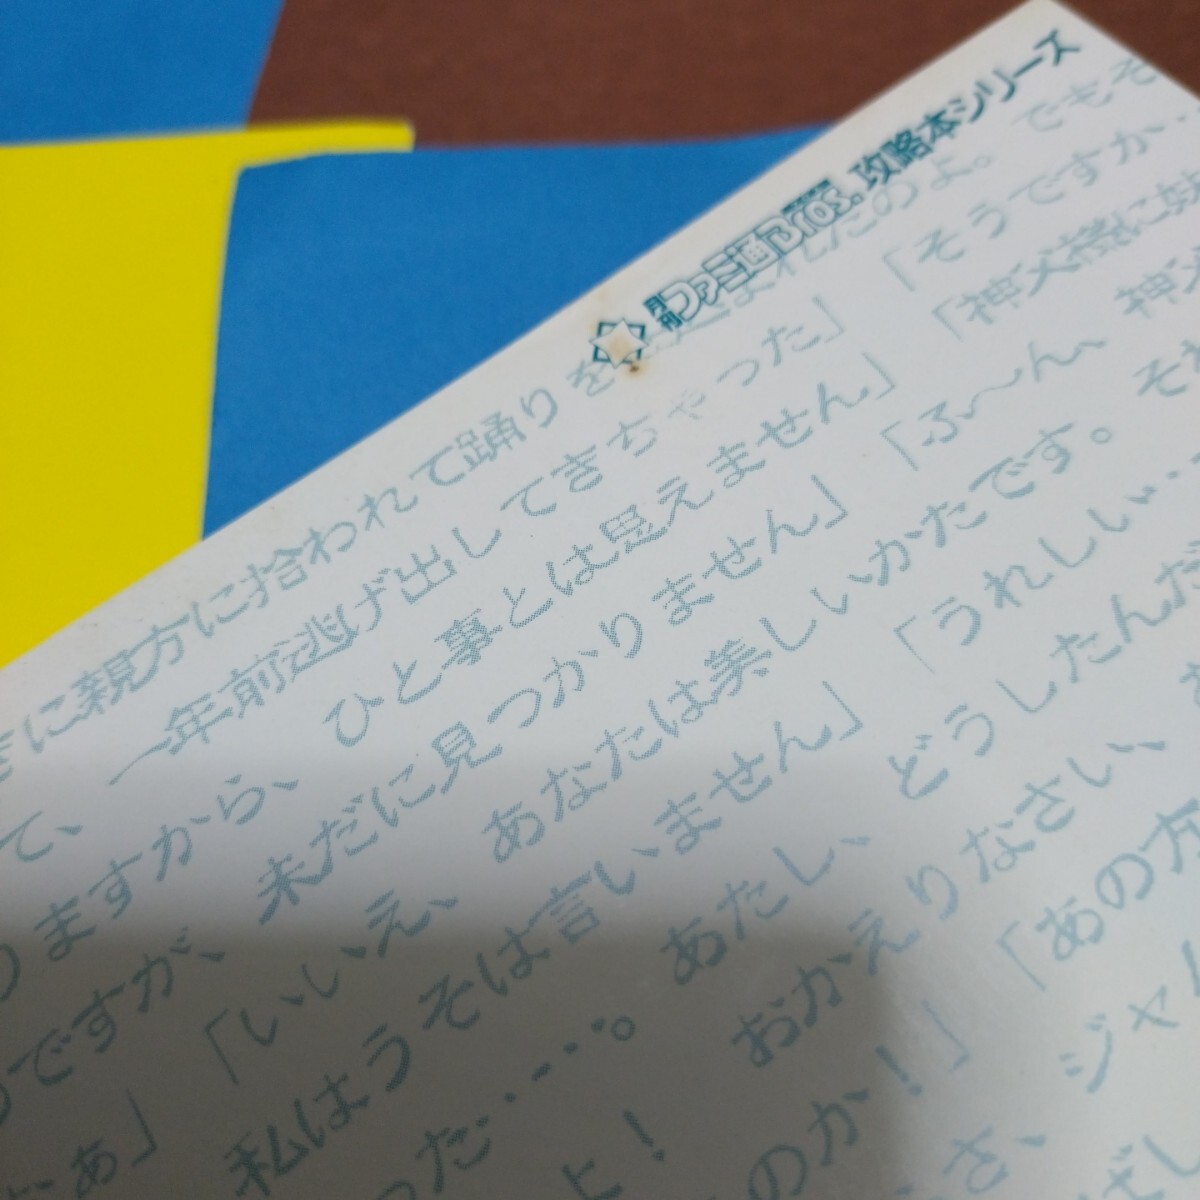 月刊ファミ通Bros.攻略本シリーズ
に親方に拾われて踊りを たのよ。でもそ
て、一年前逃げ出してきちゃった」「そうですか‥
りますから、ひと事とは思えません」「神父様に
のですが、未だに見つかりません」「ふ〜ん、神父
あ」「いいえ、あなたは美しいかたです。それ
私はうそは言いません」「うれしい‥
った‥‥。あたし、どうしたんだ
と！おかえりなさい、
のか！」「あの方
さ、ジャム
ばし